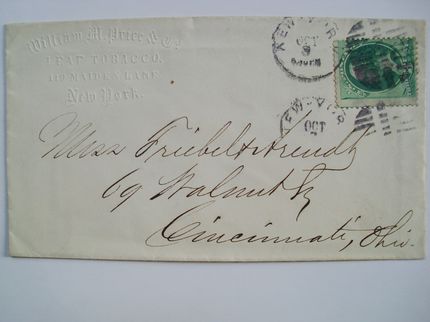 William M. Price & Co
LEAF TOBACCO,
119 MAIDEN LANE
New York.
NEW YORK
OCT
9
NEW YOR
OCT
Mess Friebel & Arendt
69 Walnut St
Cincinnati, Ohio.